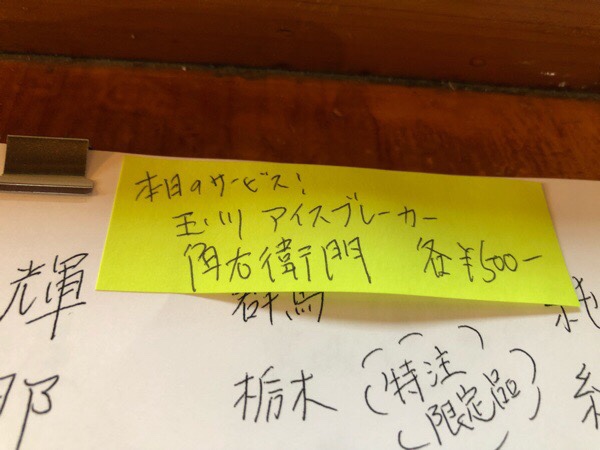 本日のサービス!
玉川 アイスブレーカー
角右衛門 各¥500-
輝 群馬
那 栃木 (特注限定品)